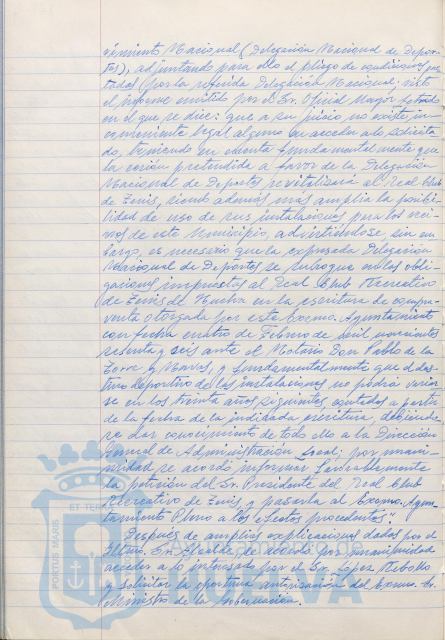 vimiento Nacional (Delegación Nacional de Depor-
tes), adjuntando para ello el pliego de condiciones
tadas por la referida Delegación Nacional; visto
el informe emitido por el Sr. Oficial Mayor Letrado
en el que se dice: que a su juicio no existe in-
conveniente legal alguno en acceder a lo solicita-
do, teniendo en cuenta fundamentalmente que
la cesión pretendida a favor de la Delegación
Nacional de Deportes revitalizará al Real Club
de Tenis, siendo además más amplia la posibi-
lidad de uso de sus instalaciones por los veci-
nos de este Municipio, advirtiéndose, sin em-
bargo, es necesario que la expresada Delegación
Nacional de Deportes se subrogue en las obli-
gaciones impuestas al Real Club Recreativo
de Tenis de Huelva en la escritura de compra
venta otorgada por este Excmo. Ayuntamiento
con fecha cuatro de Febrero de mil novecientos
sesenta y seis ante el Notario Don Pablo de la
Torre y Maros, y fundamentalmente que el des-
tino deportivo de las instalaciones no podrá variar
se en los treinta años siguientes contados a partir
de la fecha de la indicada escritura, debiendo-
se dar conocimiento de todo ello a la Dirección
General de Administración Local; por unani-
midad se acordó informar favorablemente
la petición del Sr. Presidente del Real Club
Recreativo de Tenis, y pasarla al Excmo. Ayun-
tamiento Pleno a los efectos procedentes".
Después de amplias explicaciones dadas por el
Iltmo. Sr. Alcalde se acordó por unanimidad
acceder a lo interesado por el Sr. López Rebollo
y solicitar la oportuna autorización del Excmo. Sr.
Ministro de la Gobernación.
PORTUS MARIS
ET TER
HUELVA